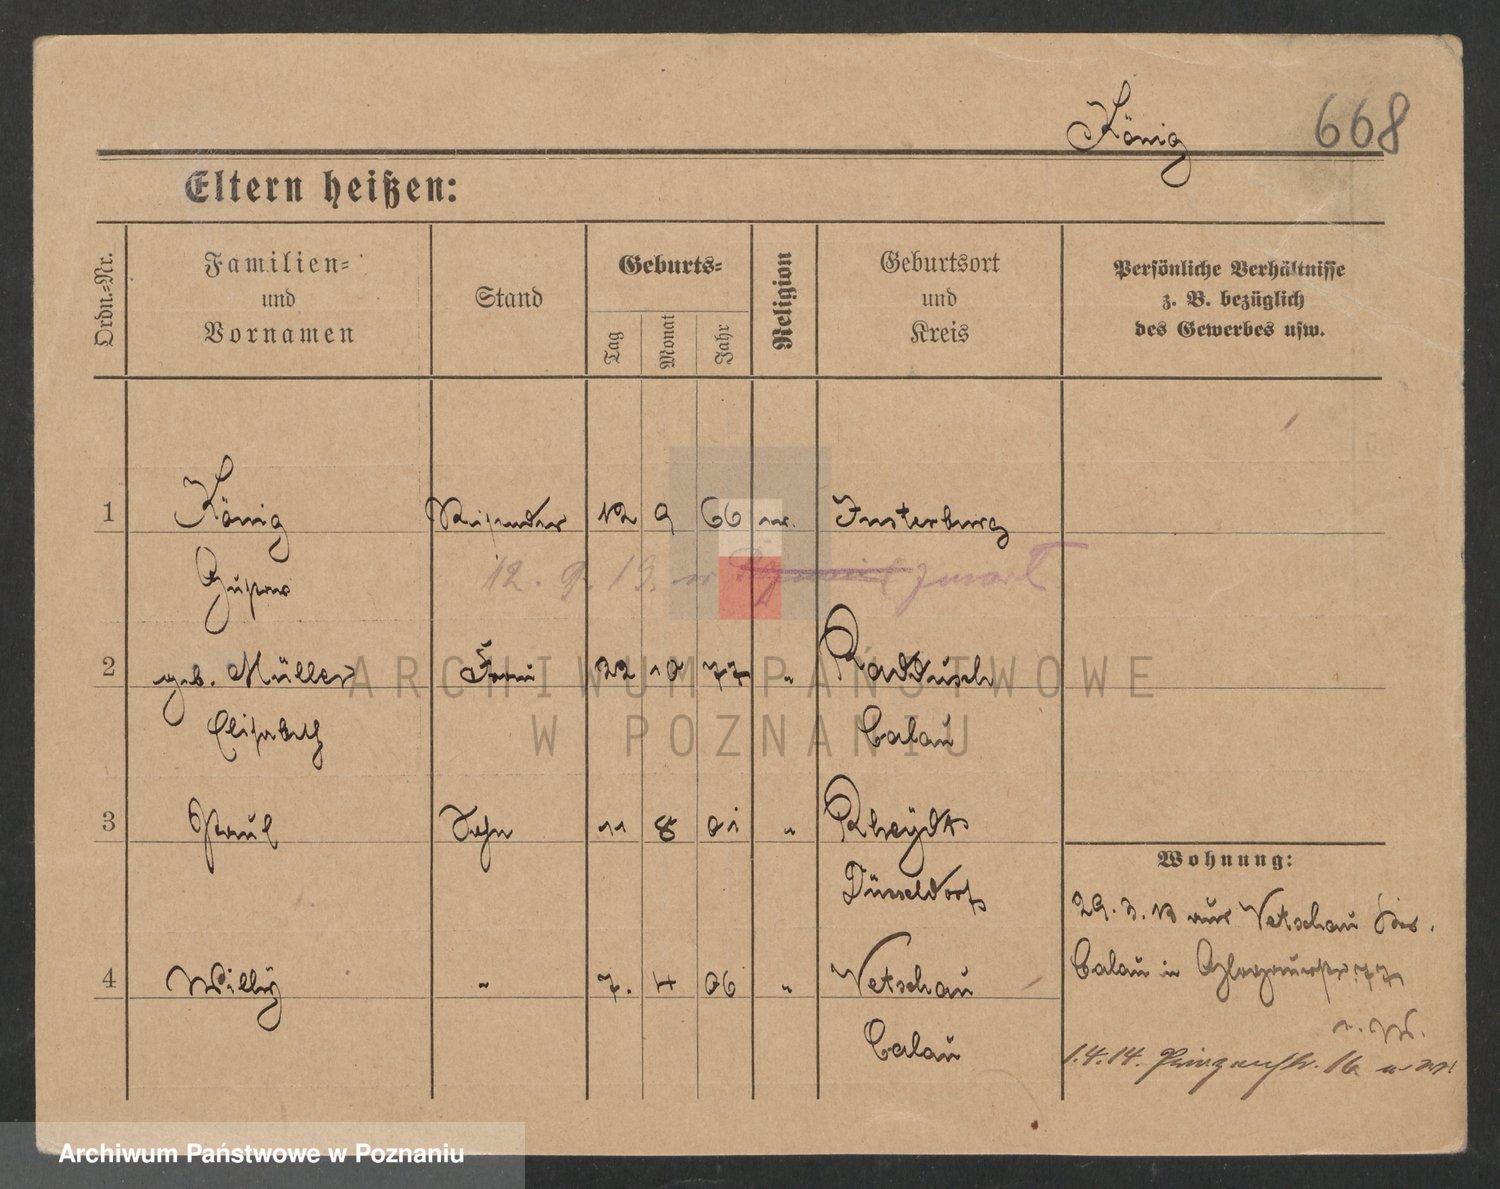 König 668
Eltern heißen:
Ordn.-Nr. Familien- und Vornamen Stand Geburts- Tag Monat Jahr Religion Geburtsort und Kreis Persönliche Verhältnisse z. B. bezüglich des Gewerbes usw.
1 König 12 9 66 ev. Insterburg
Gustav
12. 9. 13. zmarł
2 geb. Müller Frau 22 10 77 " Raddusch
Elisabeth Calau
3 Paul Sohn 11 8 01 " Rheydt
Düsseldorf
4 Willy " 7. 4 06 " Vetschau
Calau
Wohnung:
29. 3. 13 aus Vetschau Krs.
Calau in Glogauerstr. 77
1.4.14. Prinzenstr. 16
ARCHIWUM PAŃSTWOWE
W POZNANIU
Archiwum Państwowe w Poznaniu